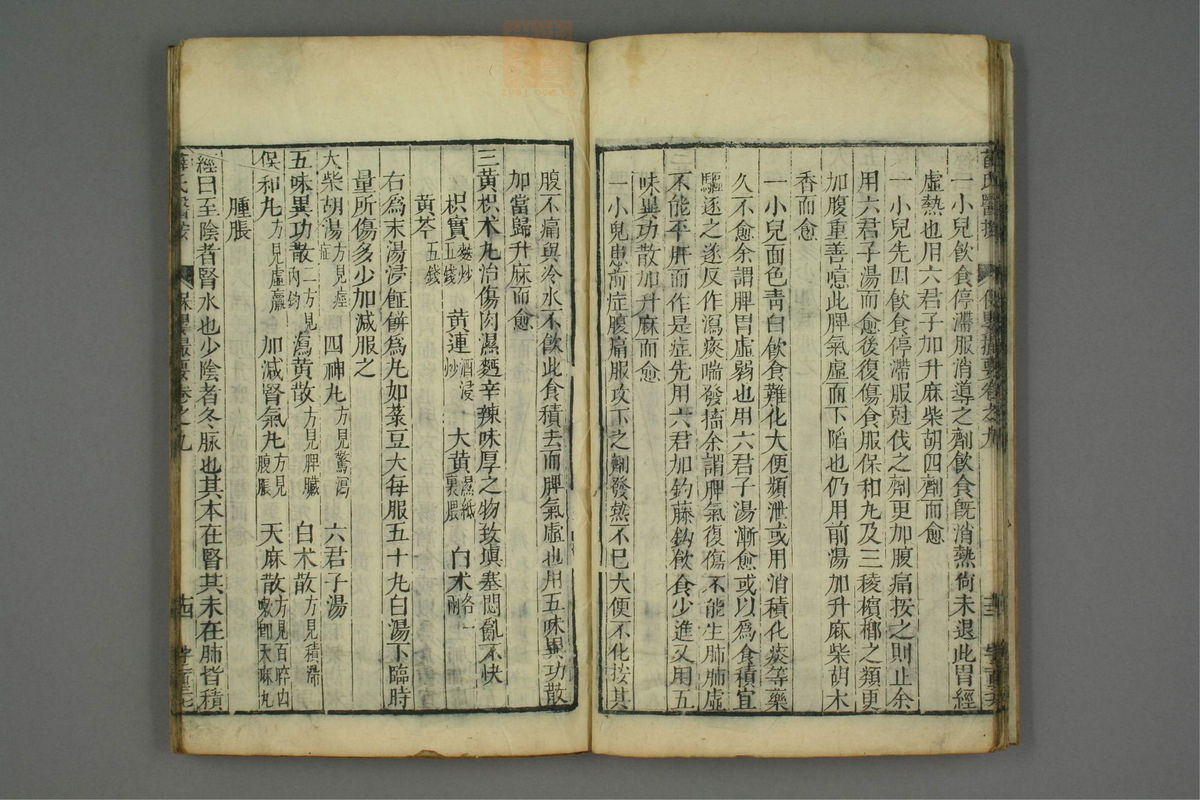 一小兒飲食停滯服消導之劑飲食旣消熱尙未退此胃經
虛熱也用六君子加升麻柴胡四劑而愈
一小兒先因飲食停滯服尅伐之劑更加腹痛按之則止余
用六君子湯而愈後復傷食服保和丸及三稜檳榔之類更
加腹重善噫此脾氣虛而下陷也仍用前湯加升麻柴胡木
香而愈
一小兒面色靑白飲食難化大便頻泄或用消積化痰等藥
久不愈余謂脾胃虛弱也用六君子湯漸愈或以爲食積宜
驅逐之遂反作瀉痰喘發搐余謂脾氣復傷不能生肺肺虛
不能平肝而作是症先用六君加鈎藤鈎飲食少進又用五
味異功散加升麻而愈
一小兒患前症腹痛服攻下之劑發熱不巳大便不化按其
腹不痛與冷水不飲此食積去而脾氣虛也用五味異功散
加當歸升麻而愈
三黃枳朮丸治傷肉濕麪辛辣味厚之物致塡塞悶亂不快
枳實麩炒五錢 黃連酒浸炒 大黃濕紙裏煨 白朮各一兩
黃芩五錢
右爲末湯浸飪餅爲丸如菉豆大每服五十丸白湯下臨時
量所傷多少加減服之
大柴胡湯方見痙症 四神丸方見驚瀉 六君子湯
五味異功散二方見內釣 瀉黃散方見脾臟 白朮散方見積滯
保和丸方見虛羸 加減腎氣丸方見腹脹 天麻散方見百晬內嗽卽天麻丸
腫脹
經曰至陰者腎水也少陰者冬脉也其本在腎其末在肺皆積
薛氏醫按 保嬰撮要卷之九 十四